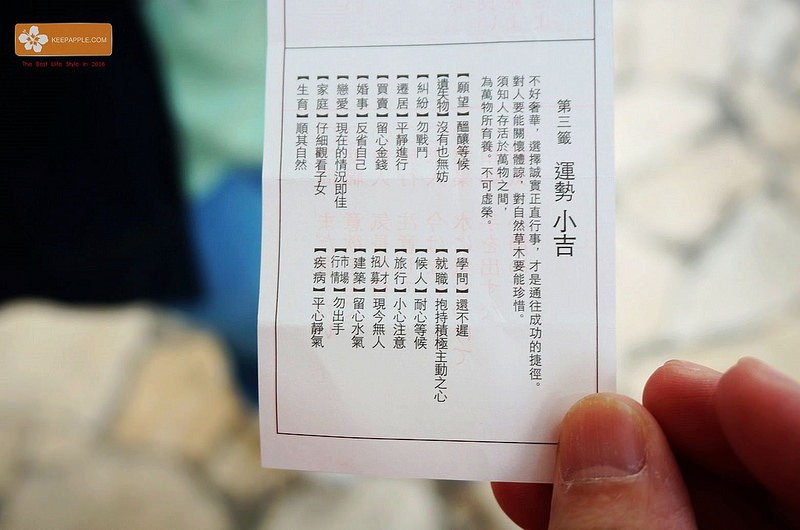 KEEPAPPLE.COM
The Best Life Style in 2016
第三籤 運勢 小吉
不好奢華，選擇誠實正直行事，才是通往成功的捷徑。
對人要能關懷體諒，對自然草木要能珍惜。
須知人存活於萬物之間，
為萬物所育養。不可虛榮。
【願望】醞釀等候
【遺失物】沒有也無妨
【糾紛】勿戰鬥
【遷居】平靜進行
【買賣】留心金錢
【婚事】反省自己
【戀愛】現在的情況即佳
【家庭】仔細觀看子女
【生育】順其自然
【學問】還不遲
【就職】抱持積極主動之心
【候人】耐心等候
【旅行】小心注意
【人才招募】現今無人
【建築】留心水氣
【市場行情】勿出手
【疾病】平心靜氣